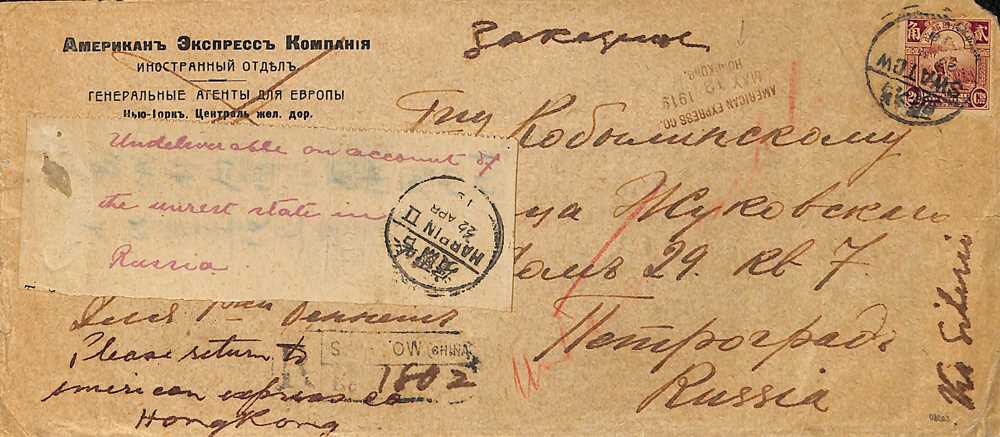 Американъ Экспрессъ Компанія
ИНОСТРАННЫЙ ОТДѢЛЪ.
ГЕНЕРАЛЬНЫЕ АГЕНТЫ ДЛЯ ЕВРОПЫ
Нью-Іоркъ, Централь жел. дор.
Заказное
AMERICAN EXPRESS CO.
12 1919
HONGKONG.
SWATOW
角
貳
Undeliverable on account of
the unrest state in
Russia
HARPIN II
22 APR
Кобылинскому
Жуковскаго
29. кв 7
Петроградъ
Russia
Via Siberia
Для
Please return to
american express co
HongKong
R
S
MO
(CHINA)
No
1802